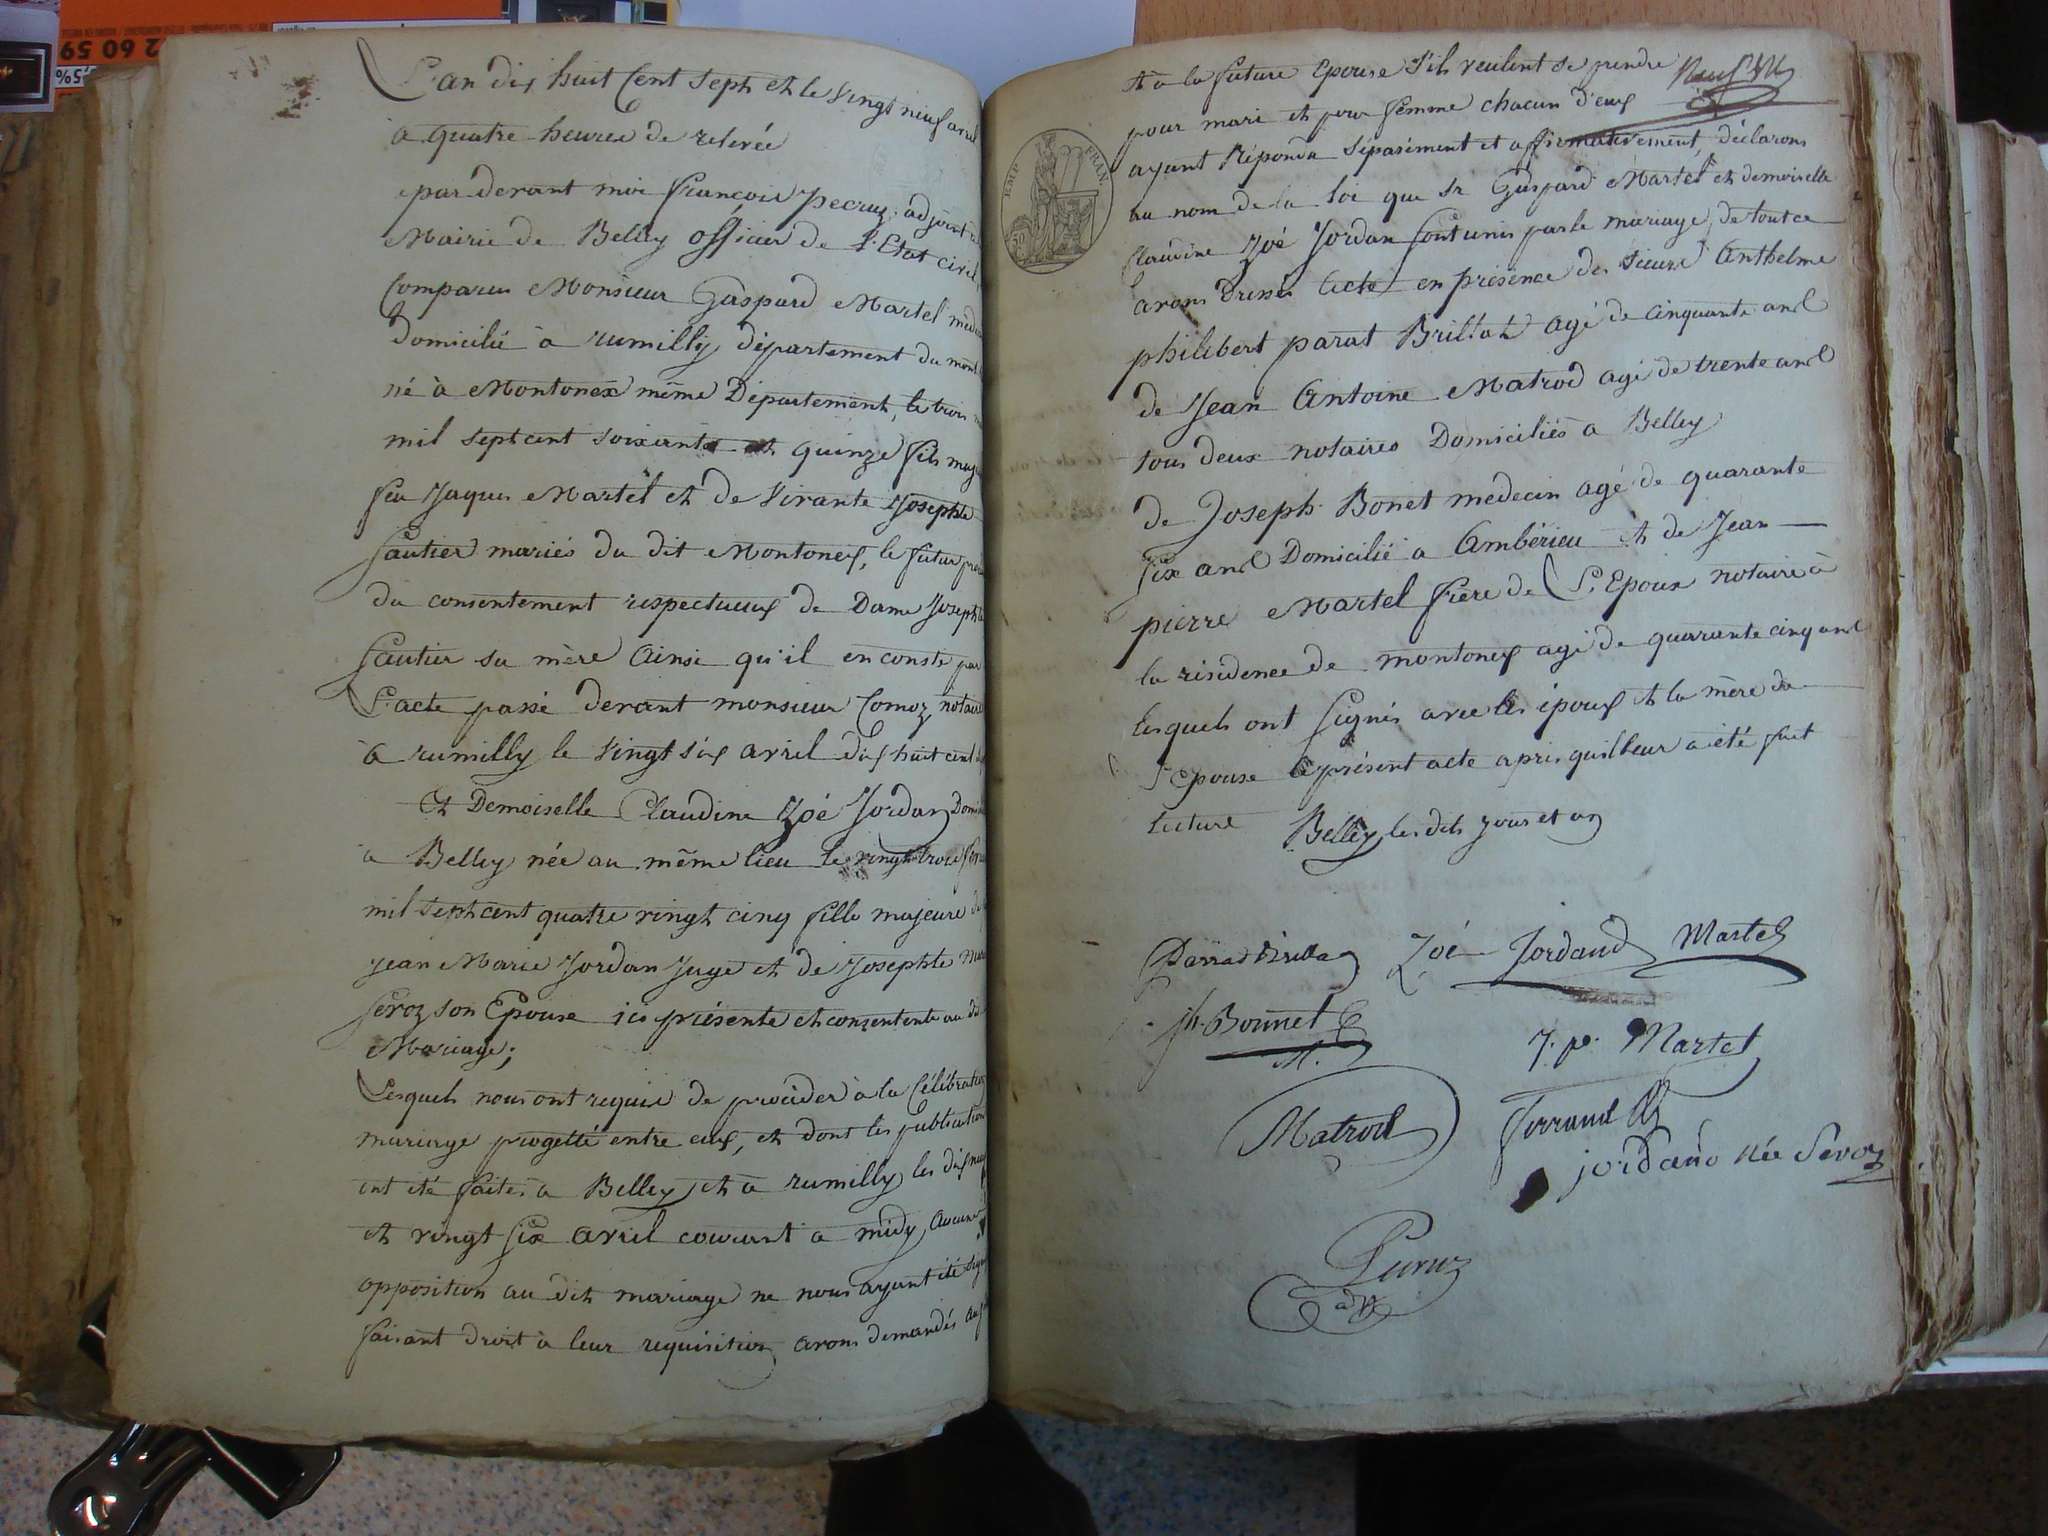 L'an dix huit Cent sept et le vingt neuf avril
a quatre heures de relevée
par devant moi françois pecruz adjoint
Mairie de Belley officier de l'Etat civil
Comparus Monsieur Gaspard Martel médecin
Domicilié à rumilly département du mont
né à Montonex même Département, le trois
mil sept cent soixante et quinze fils majeur
feu Jaques Martel et de vivante Josephte
Gautier mariés du dit Montonex, le futur
du consentement respectueux de Dame Josephte
Gautier sa mère Ainsi qu'il en conste par
L'acte passé devant monsieur Comoz notaire
à rumilly le vingt six avril dix huit cent
Et Demoiselle Claudine Zoé Jordan
a Belley née au même lieu le vingt trois
mil sept cent quatre vingt cinq fille majeure de
jean Marie Jordan Juge et de Josephte
Sevoz son Epouse ici présente et consentente au dit
Mariage;
Lesquels nous ont requis de procéder à la Célébration
mariage progetté entre eux, et dont les publications
ont été faites a Belley et à rumilly les dix neuf
et vingt six avril courant a midy, Aucune
opposition au dit mariage ne nous ayant été
faisant droit à leur requisition avons demandés au
et a la future Epouse s'ils veulent se prendre
pour mari et pour femme chacun d'eux
ayant Répondu séparément et affirmativement, déclarons
au nom de la loi que sr Gaspard Martel et demoiselle
Claudine Zoé Jordan sont unis par le mariage, de tout ce
avons Dressé Acte en présence des sieurs Anthelme
philibert parat Brillat agé de cinquante ans
de Jean Antoine Matrod agé de trente ans
tous deux notaires Domiciliés a Belley
de Joseph Bonet medecin agé de quarante
six ans Domicilié a Ambérieu et de Jean
pierre Martel frère de L'Epoux notaire à
la résidence de montonex agé de quarante cinq ans
lesquels ont signés avec les époux et la mère de
l'Epouse le présent acte apris quil leur a été fait
lecture Belley les dits jour et an
EMP. FRAN.
50
Parrat Brillat Zoé Jordand Martel
jh. Bonnet
M.
J. pe. Martel
Matrod ferrand
jordand née Sevoz
Pecruz
adj